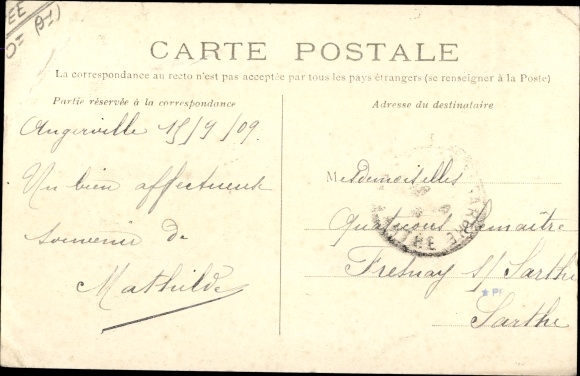 CARTE POSTALE
La correspondance au recto n'est pas acceptée par tous les pays étrangers (se renseigner à la Poste)
Partie réservée à la correspondance
Adresse du destinataire
Angerville 15/9/09.
Un bien affectueux
souvenir de
Mathilde
Mesdemoiselles
Lemaitre
Fresnay s/ Sarthe
Sarthe
PF